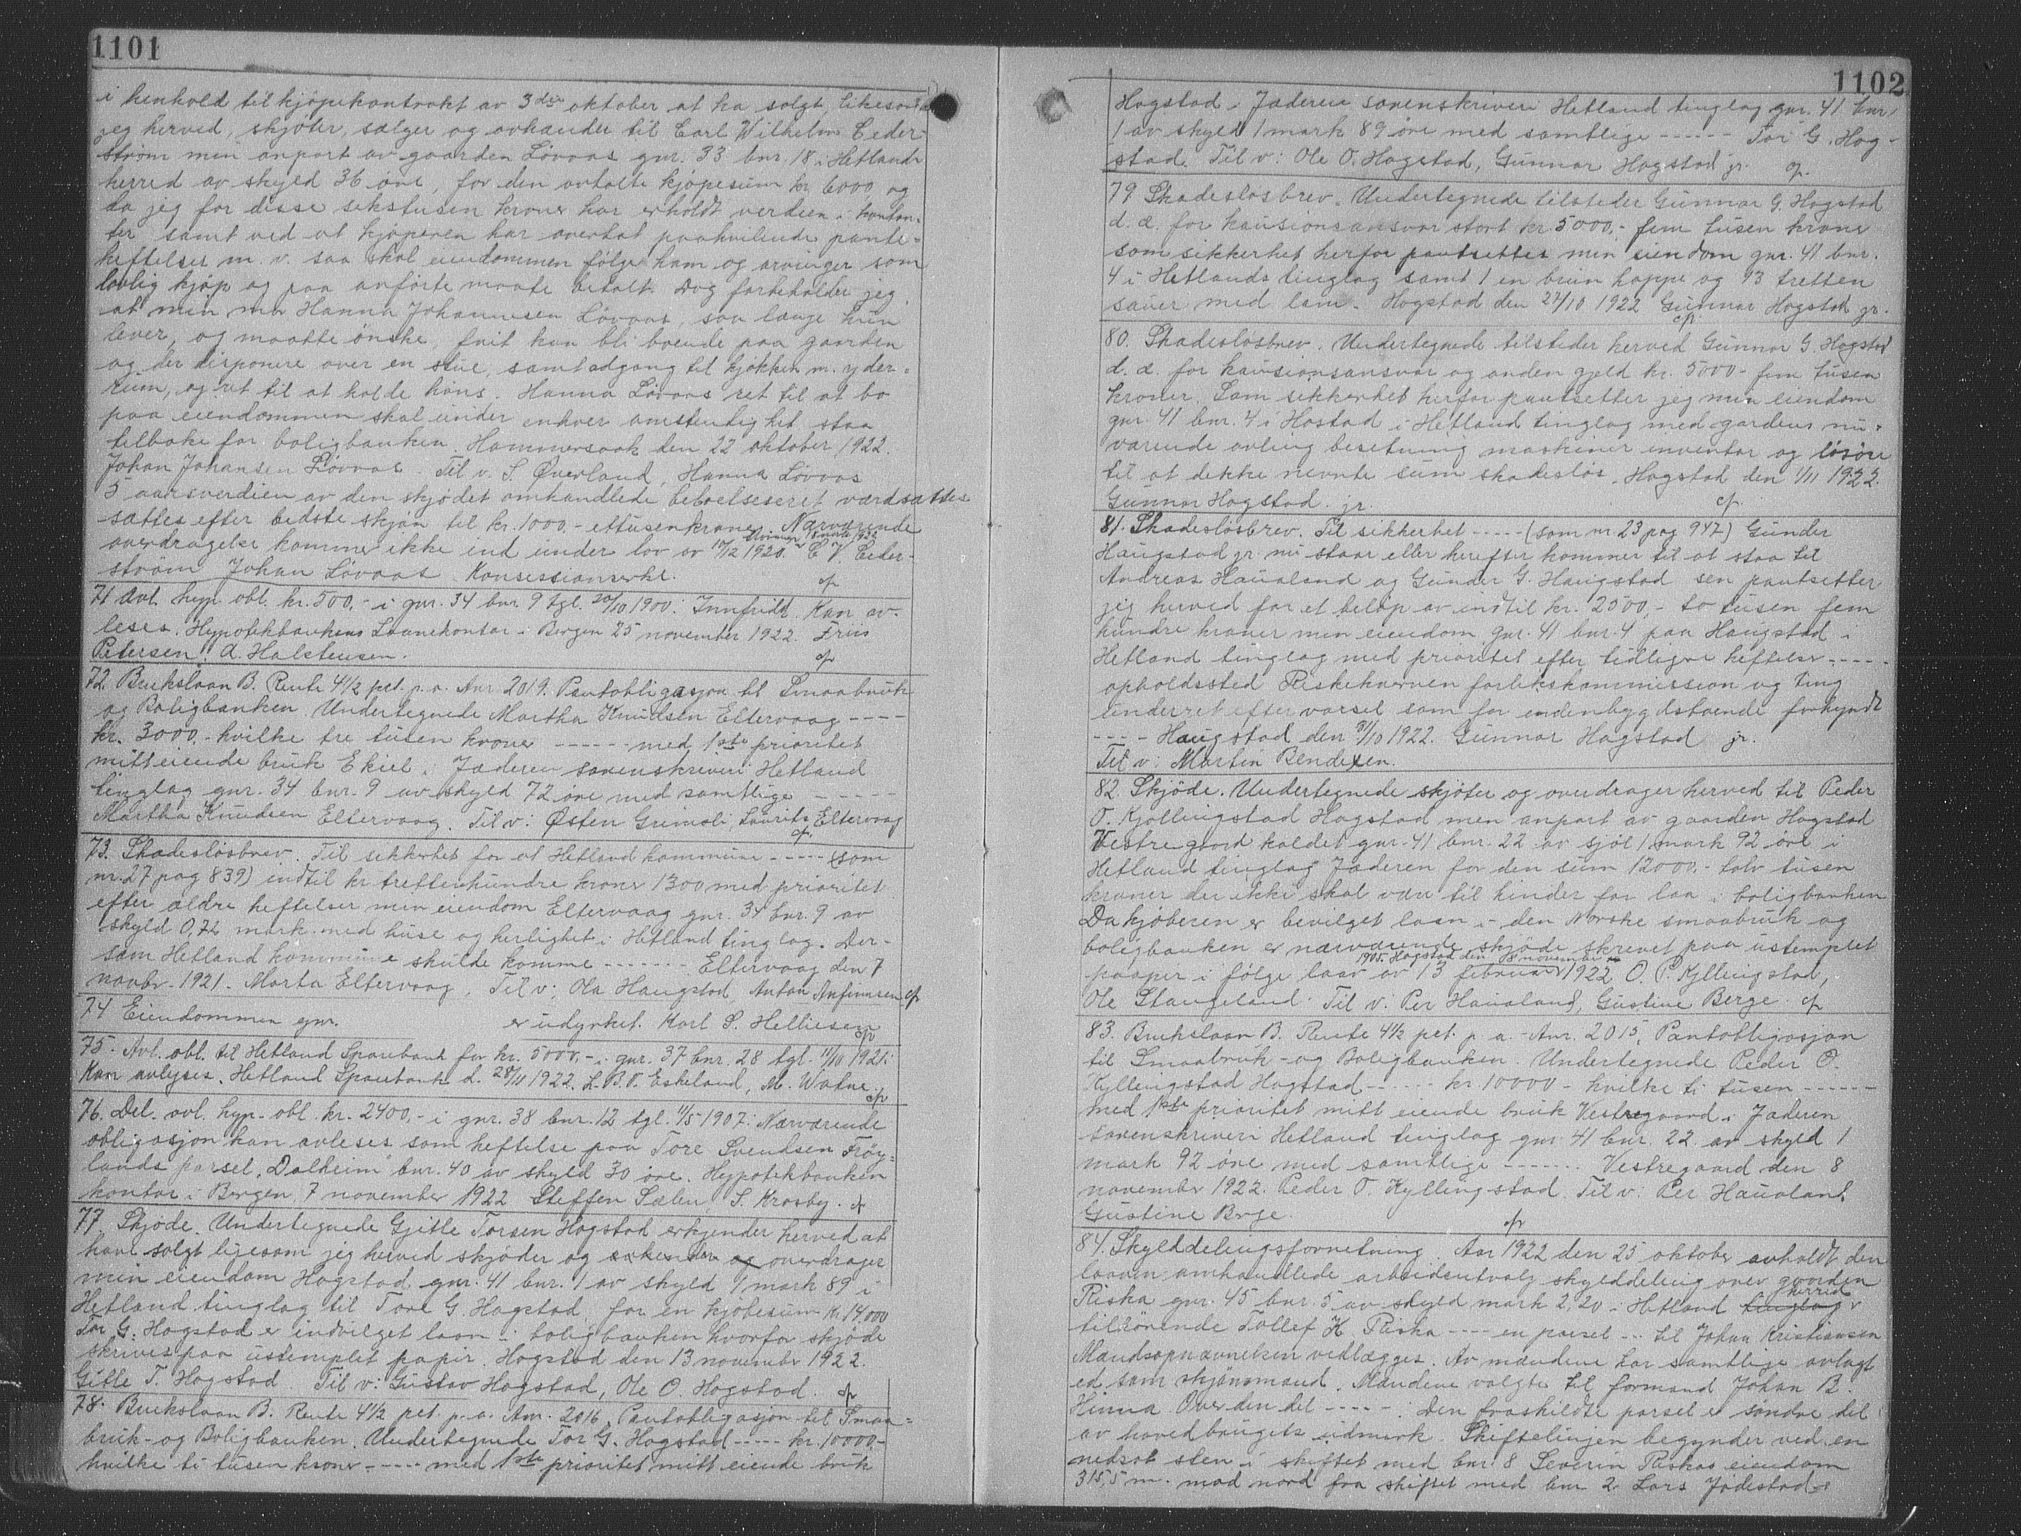 1101
i henhold til kjøpekontrakt av 3die oktober at ha solgt likesom
jeg herved, skjøter, sælger og avhænder til Carl Wilhelm Ceder-
strøm min anpart av gaarden Løvaas gnr. 33 bnr. 18 i Hetlands
herred av skyld 36 øre, for den avtalte kjøpesum kr 6000 og
da jeg for disse sekstusen kroner har erholdt verdien i kontan-
ter samt ved at kjøperen har overtat paahvilende pante-
heftelser m. v. saa skal eiendommen følge ham og arvinger som
lovlig kjøp og paa anførte maate betalt. Dog forbeholder jeg
at min mor Hanna Johannesen Løvaas, saa længe hun
lever, og maatte ønske, frit kan bli boende paa gaarden
og der disponere over en stue, samt adgang til kjøkken m. yder-
rum, og ret til at holde høns. Hanna Løvaas ret til at bo
paa eiendommen skal under enhver omstendighet staa
tilbake for boligbanken. Hommersaak den 22 oktober 1922.
Johan Johansen Løvaas. Til v. S. Øverland, Hanna Løvaas
5 aarsverdien av den skjødet omhandlede beboelsesret værdsættes
sættes efter bedste skjøn til kr. 1000 - ettusen kroner. Nærværende
overdragelse kommer ikke ind under lov av 10/12 1920. C. W. Ceder-
strøm Johan Løvaas. Konsessionserkl. cp
71 Avl. hyp. obl. kr. 500,- i gnr. 34 bnr 9 tgl. 20/10 1900: Innfridd. Kan av-
leses. Hypotekbankens Laanekontor i Bergen 25 november 1922. Friis
Petersen. A. Halstensen. cp
72. Brukslaan B. Rente 4 1/2 pct. p. a. Anr 2019. Pantobligasjon til Smaabruk
og Boligbanken. Undertegnede Martha Knudsen Eltervaag ----
kr. 3000,- hvilke tre tusen kroner ----- med 1ste prioritet
mitt eiende bruk Ekiel i Jæderen sorenskriveri Hetland
tinglag gnr. 34 bnr. 9 av skyld 72 øre med samtlige -----
Martha Knudsen Eltervaag. Til v: Østen Grimsli, Laurits Eltervaag
cp
73. Skadesløsbrev. Til sikkerhet for at Hetland kommune ----- (som
nr. 27 pag 839) indtil kr trettenhundre kroner 1300 med prioritet
efter ældre heftelser min eiendom Eltervaag gnr. 34 bnr. 9 av
skyld 0,72 mark med huse og herlighet i Hetland tinglag. Der-
som Hetland kommune skulde komme ------- Eltervaag den 7
novbr. 1921. Marta Eltervaag. Til v: Ola Haugstad, Anton Anfinnsen cp
74 Eiendommen gnr. er udyrket. Karl S. Helliesen
cp
75. Avl. obl. til Hetland Sparebank for kr. 5000,- i gnr. 37 bnr. 28 tgl. 11/10 1921:
Kan avlyses. Hetland Sparebank d. 28/11 1922. L. B. P. Eskeland, M. Watne.
cp
76. Del. avl. hyp. obl. kr. 2400,- i gnr. 38 bnr. 12 tgl. 11/5 1907: Nærværende
obligasjon kan avleses som heftelse paa Tore Svendsen Frøy-
lands parsel "Dalheim" bnr. 40 av skyld 30 øre. Hypotekbanken
kontor i Bergen 7 november 1922 Steffen Sælen, S. Krosby. cp
77. Skjøde. Undertegnede Gitle Torsen Hogstad erkjender herved at
have solgt ligesom jeg herved skjøder og avhender og overdrager
min eiendom Hogstad gnr. 41 bnr. 1 av skyld 1 mark 89 i
Hetland tinglag til Tore G. Hogstad for en kjøbesum kr. 14,000
Tor G. Hogstad er indvilget laan i boligbanken hvorfor skjøde
skrives paa ustemplet papir. Hogstad den 13 november 1922.
Gitle T. Hogstad Til v: Gustav Hogstad, Ole O. Hogstad. cp
78. Brukslaan B. Rente 4 1/2 pct. p. a. Anr. 2016. Pantobligasjon til Smaa-
bruk- og Boligbanken. Undertegnede Tor G. Hogstad ----- kr. 10000,-
hvilke ti tusen kroner ----- med 1ste prioritet mitt eiende bruk
1102
Hogstad i Jæderen sorenskriveri Hetland tinglag gnr. 41 bnr.
1 av skyld 1 mark 89 øre med samtlige ------ Tor G. Hog-
stad. Til v: Ole O. Hogstad, Gunnar Hogstad jr. cp.
79 Skadesløsbrev. Undertegnede tilsteder Gunnar G. Hogstad
d. æ. for kausionsansvar stort kr 5000,- fem tusen krone
som sikkerhet herfor pantsettes min eiendom gnr. 41 bnr.
4 i Hetlands tinglag samt 1 en brun hoppe og 13 tretten
sauer med lam. Hogstad den 27/10 1922 Gunnar Hogstad jr.
cp.
80. Skadesløsbrev. Undertegnede tilsteder herved Gunnar G. Hogstad
d. æ. for kausionsansvar og anden gjeld kr. 5000- fem tusen
kroner. Som sikkerhet herfor pantsetter jeg min eiendom
gnr. 41 bnr. 4 i Hostad i Hetland tinglag med gardens nu-
værende avling besetning maskiner inventar og løsøre
til at dekke nevnte sum skadesløs. Hogstad den 1/11 1922.
Gunnar Hogstad. jr. cp.
81. Skadesløsbrev. Til sikkerhet ----- (som nr. 23 pag 947) Gunder
Haugstad jr. nu staar eller herefter kommer til at staa til
Andreas Haualand og Gunder G. Haugstad sen pantsetter
jeg herved for et beløp av indtil kr. 2500,- to tusen fem
hundre kroner min eiendom gnr. 41 bnr. 4 paa Haugstad i
Hetland tinglag med prioritet efter tidligre heftelser -----
opholdssted Riskekværven forlikskommission og ting
underret efter varsel som for indenbygdsboende forkyndt
---- Haugstad den 31/10 1922. Gunnar Hogstad jr.
Til v: Martin Bendixen.
82. Skjøde. Undertegnede skjøter og overdrager herved til Peder
O. Kyllingstad Hogstad min anpart av gaarden Hogstad
Vestregard kaldet gnr. 41 bnr. 22 av sjøl 1 mark 92 øre i
Hetland tinglag Jæderen for den sum 12000,- tolv tusen
kroner der ikke skal vær til hinder for laa i boligbanken
Da kjøberen er bevilget laan i den Norske smaabruk og
boligbanken er nærværende skjøde skrevet paa ustemplet
1905. Hogstad den 8 november
paaper i følge laav av 13 februar 1922 O. P. Kyllingstad,
Ole Stangeland. Til v. Per Haualand, Gustine Berge. cp
83. Brukslaan B. Rente 4 1/2 pct. p. a. - Anr. 2015. Pantobligasjon
til Smaabruk- og Boligbanken. Undertegnede Peder O.
Kyllingstad Hogstad ----- kr 10000 - hvilke ti tusen ------
med 1ste prioritet mitt eiende bruk Vestregaard i Jæderen
sorenskriveri Hetland tinglag gnr 41 bnr. 22 av skyld 1
mark 92 øre med samtlige ------- Vestregaard den 8
november 1922. Peder O. Kyllingstad. Til v: Per Haualand.
Gustine Berge. cp
84. Skylddelingsforretning. Aar 1922 den 25 oktober avholdt den
laaven omhandlede arbeidsutvalg skylddeling over gaarden
herred
Riska gnr. 45 bnr. 5 av skyld mark 2,20 - Hetland tinglag
tilhørende Tollef K. Riska ---- en parsel --- til Johan Kristiansen
Mandsopnævnelsen vedlægges. Av mændene har samtlige avlagt
ed som skjønsmænd. Mændene valgte til formand Johan B.
Hinna Over den del -----: Den fraskildte parsel er søndre del
av hovedbrugets udmark. Skiftelinjen begynder ved en
nedsat sten i skiftet med bnr. 8 Severin Riskas eiendom
315,5 m. mod nord fra skiftet med bnr 2 Lars Jødestad